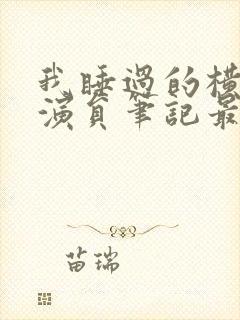 我睡過的橫
演員筆記最
苗瑞